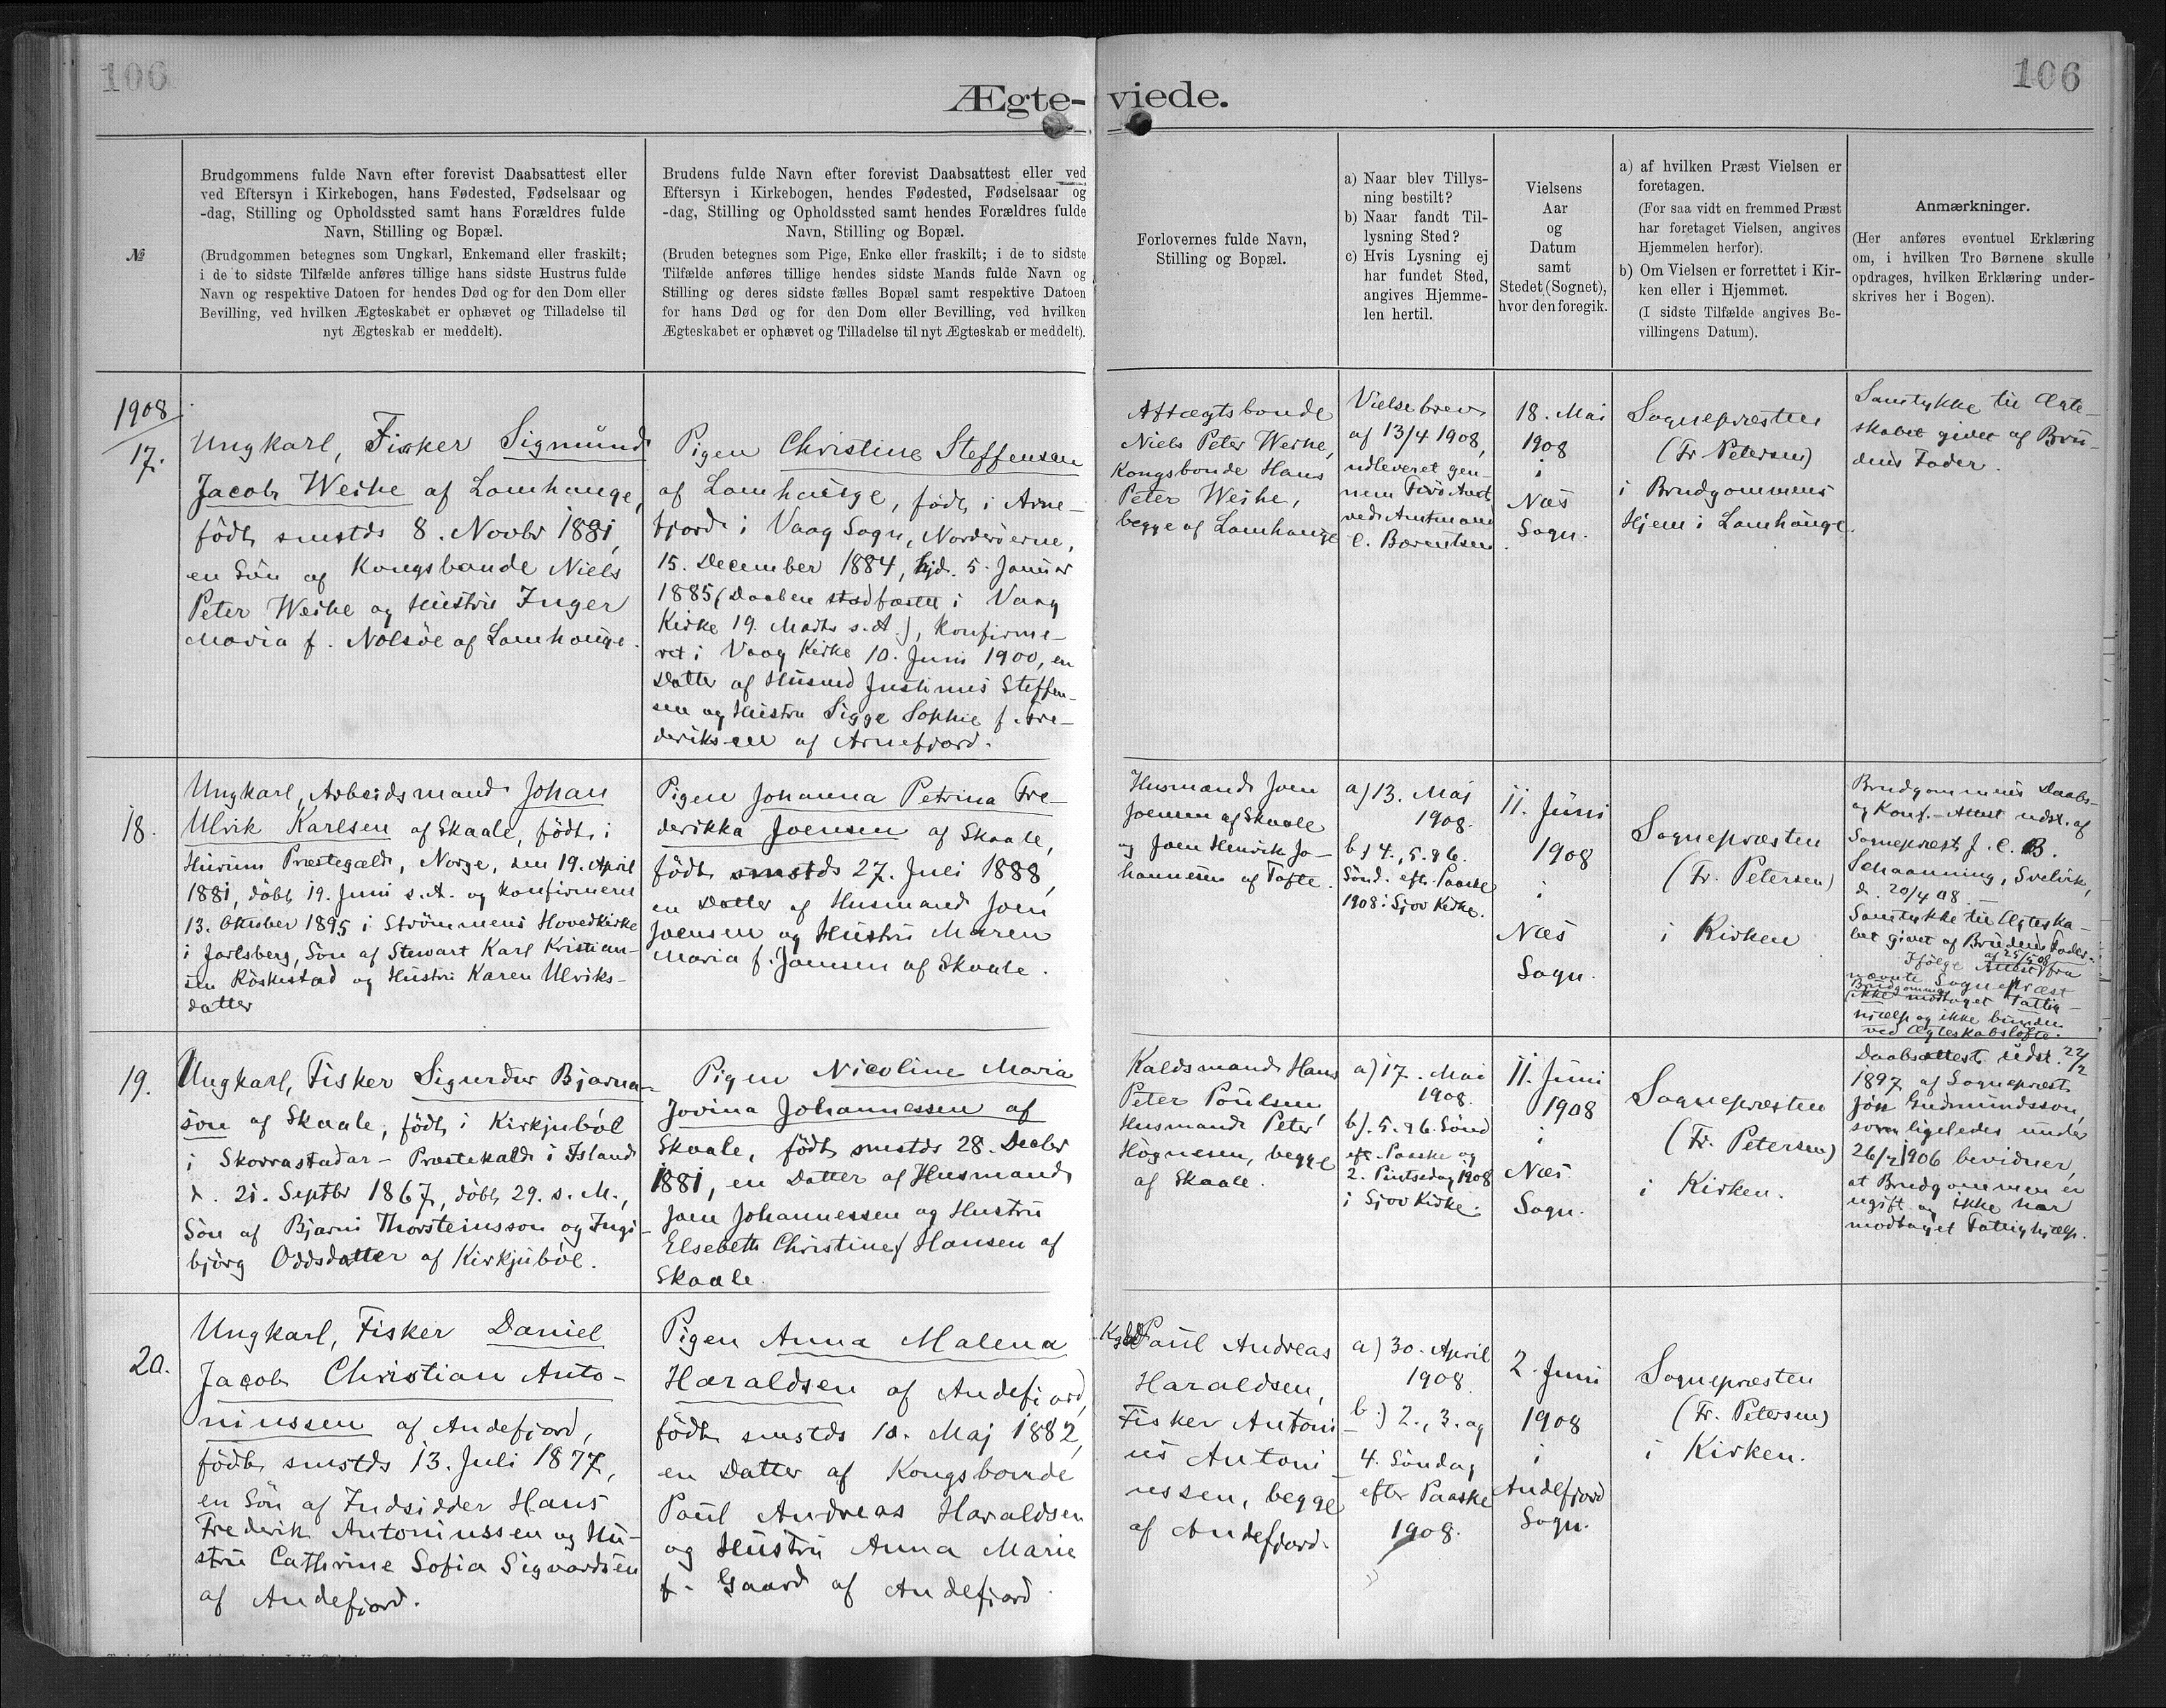 106
106
Ægte-viede.
№
Brudgommens fulde Navn efter forevist Daabsattest eller
ved Eftersyn i Kirkebogen, hans Fødested, Fødselsaar og
-dag, Stilling og Opholdssted samt hans Forældres fulde
Navn, Stilling og Bopæl.
(Brudgommen betegnes som Ungkarl, Enkemand eller fraskilt;
i de to sidste Tilfælde anføres tillige hans sidste Hustrus fulde
Navn og respektive Datoen for hendes Død og for den Dom eller
Bevilling, ved hvilken Ægteskabet er ophævet og Tilladelse til
nyt Ægteskab er meddelt).
Brudens fulde Navn efter forevist Daabsattest eller ved
Eftersyn i Kirkebogen, hendes Fødested, Fødselsaar og
-dag, Stilling og Opholdssted samt hendes Forældres fulde
Navn, Stilling og Bopæl.
(Bruden betegnes som Pige, Enke eller fraskilt; i de to sidste
Tilfælde anføres tillige hendes sidste Mands fulde Navn og
Stilling og deres sidste fælles Bopæl samt respektive Datoen
for hans Død og for den Dom eller Bevilling, ved hvilken
Ægteskabet er ophævet og Tilladelse til nyt Ægteskab er meddelt).
Forlovernes fulde Navn,
Stilling og Bopæl.
a) Naar blev Tillys-
ning bestilt?
b) Naar fandt Til-
lysning Sted?
c) Hvis Lysning ej
har fundet Sted,
angives Hjemme-
len hertil.
Vielsens
Aar
og
Datum
samt
Stedet (Sognet),
hvor den foregik.
a) af hvilken Præst Vielsen er
foretagen.
(For saa vidt en fremmed Præst
har foretaget Vielsen, angives
Hjemmelen herfor).
b) Om Vielsen er forrettet i Kir-
ken eller i Hjemmet.
(I sidste Tilfælde angives Be-
villingens Datum).
Anmærkninger.
(Her anføres eventuel Erklæring
om, i hvilken Tro Børnene skulle
opdrages, hvilken Erklæring under-
skrives her i Bogen).
1908
17.
Ungkarl, Fisker Sigmund
Jacob Weihe af Lamhauge,
født smstds 8. Novbr 1881,
en Søn af Kongsbonde Niels
Peter Weihe og Hustru Inger
Maria f. Nolsøe af Lamhauge.
Pigen Christine Steffensen
af Lamhauge, født i Arne-
fjord i Vaag Sogn, Norderøerne,
15. December 1884, hjd. 5. Januar
1885 (Daaben stadfæstet i Vaag
Kirke 19. Marts s. A.), konfirme-
ret i Vaag Kirke 10. Juni 1900, en
Datter af Husmd Justinus Steffen-
sen og Hustru Sigge Sophie f. Fre-
deriksen af Arnefjord.
Aftægtsbonde
Niels Peter Weihe,
Kongsbonde Hans
Peter Weihe,
begge af Lamhauge
Vielsebrev
af 13/4 1908,
udleveret gen-
nem Færø Amt
ved Amtmand
C. Bærentsen.
18. Mai
1908
i
Næs
Sogn.
Sognepræsten
(Fr. Petersen)
i Brudgommens
Hjem i Lamhauge.
Samtykke til Ægte-
skabet givet af Bru-
dens Fader.
18.
Ungkarl, Arbeidsmand Johan
Ulrik Karlsen af Skaale, født i
Hurum Præstegæld, Norge, den 19. April
1881, døbt 19. Juni s. A. og konfirmeret
13. Oktober 1895 i Strömmens Hovedkirke
i Jarlsberg, Søn af Stewart Karl Kristian-
sen Röskestad og Hustru Karen Ulriks-
datter
Pigen Johanna Petrina Fre-
derikka Joensen af Skaale,
født smstds 27. Juli 1888,
en Datter af Husmand Joen
Joensen og Hustru Maren
Maria f. Joensen af Skaale.
Husmand Joen
Joensen af Skaale
og Joen Henrik Jo-
hannesen af Tofte.
a) 13. Maj
1908.
b) 4., 5. og 6.
Sönd. eft. Paaske
1908 i Sjov Kirke.
11. Juni
1908
i
Næs
Sogn.
Sognepræsten
(Fr. Petersen)
i Kirken
Brudgommens Daabs-
og Konf.-Attest udst. af
Sognepræst J. C. B.
Schaanning, Svelvik,
d. 20/4 08.
Samtykke til Ægteska-
bet givet af Brudens Fader.
Ifölge Attest af 25/5 08 fra
nævnte Sognepræst
Brudgommen
ikke modtaget Fattig-
hjælp og ikke bunden
ved Ægteskabsløfte.
19.
Ungkarl, Fisker Sigurdur Bjarna-
son af Skaale, født i Kirkjuból
i Skorrastadar-Præstekald i Island
d. 21. Septbr 1867, døbt 29. s. M.,
Søn af Bjarni Thorsteinsson og Ingi-
björg Oddsdatter af Kirkjuból.
Pigen Nicoline Maria
Jovina Johannessen af
Skaale, født smstds 28. Decbr
1881, en Datter af Husmand
Joen Johannessen og Hustru
Elsebeth Christine f. Hansen af
Skaale.
Kaldsmand Hans
Peter Poulsen,
Husmand Peter
Högnesen, begge
af Skaale.
a) 17. Mai
1908.
b) 5. og 6. Sönd
eft. Paaske og
2. Pintsedag 1908
i Sjov Kirke.
11. Juni
1908
i
Næs
Sogn.
Sognepræsten
(Fr. Petersen)
i Kirken.
Daabsattest udst. 22/2
1897 af Sognepræst
Jón Gudmundsson,
som ligeledes under
26/7 1906 bevidner,
at Brudgommen er
ugift og ikke har
modtaget Fattighjælp.
20.
Ungkarl, Fisker Daniel
Jacob Christian Anto-
niussen af Andefjord,
født smstds 13. Juli 1877,
en Søn af Indsidder Hans
Frederik Antoniussen og Hu-
stru Cathrine Sofia Sigvardsen
af Andefjord.
Pigen Anna Malena
Haraldsen af Andefjord,
født smstds 10. Maj 1882,
en Datter af Kongsbonde
Poul Andreas Haraldsen
og Hustru Anna Marie
f. Gaard af Andefjord
Kgbd Poul Andreas
Haraldsen,
Fisker Antoni-
us Antoni-
ussen, begge
af Andefjord.
a) 30. April
1908
b.) 2., 3. og
4. Söndag
efter Paaske
1908.
2. Juni
1908
i
Andefjord
Sogn.
Sognepræsten
(Fr. Petersen)
i Kirken.